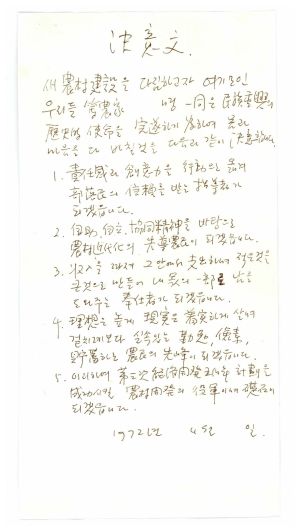 決意文.
새 農村建設을 다짐하고자 여기모인
우리들 營農家 명 一同은 民族中興의
歷史的 使命을 完遂하기 爲하여 몸과
마음을 다 바칠것을 다음과 같이 決意한다.
1. 責任感과 創意力을 行動으로 옮겨
部落民의 信賴를 받는 指導者가
되겠읍니다.
2. 自助, 自立, 協同精神을 바탕으로
農村近代化의 先導農民이 되겠읍니다.
3. 收入을 따라 그 안에서 支出하여 적은것을
큰것으로 만들어 내 것의 一部로 남을
도와주는 奉仕者가 되겠읍니다.
4. 理想은 높게 現實은 着實하게 살며
겉치레보다 실속있는 勤勉, 儉素,
하는 農民의 先峰이 되겠읍니다.
5. 이리하여 第三次 經濟開發 5個年 計劃을
成功시킬 農村開發의 役軍이
되겠읍니다.
1972년 4월 일.